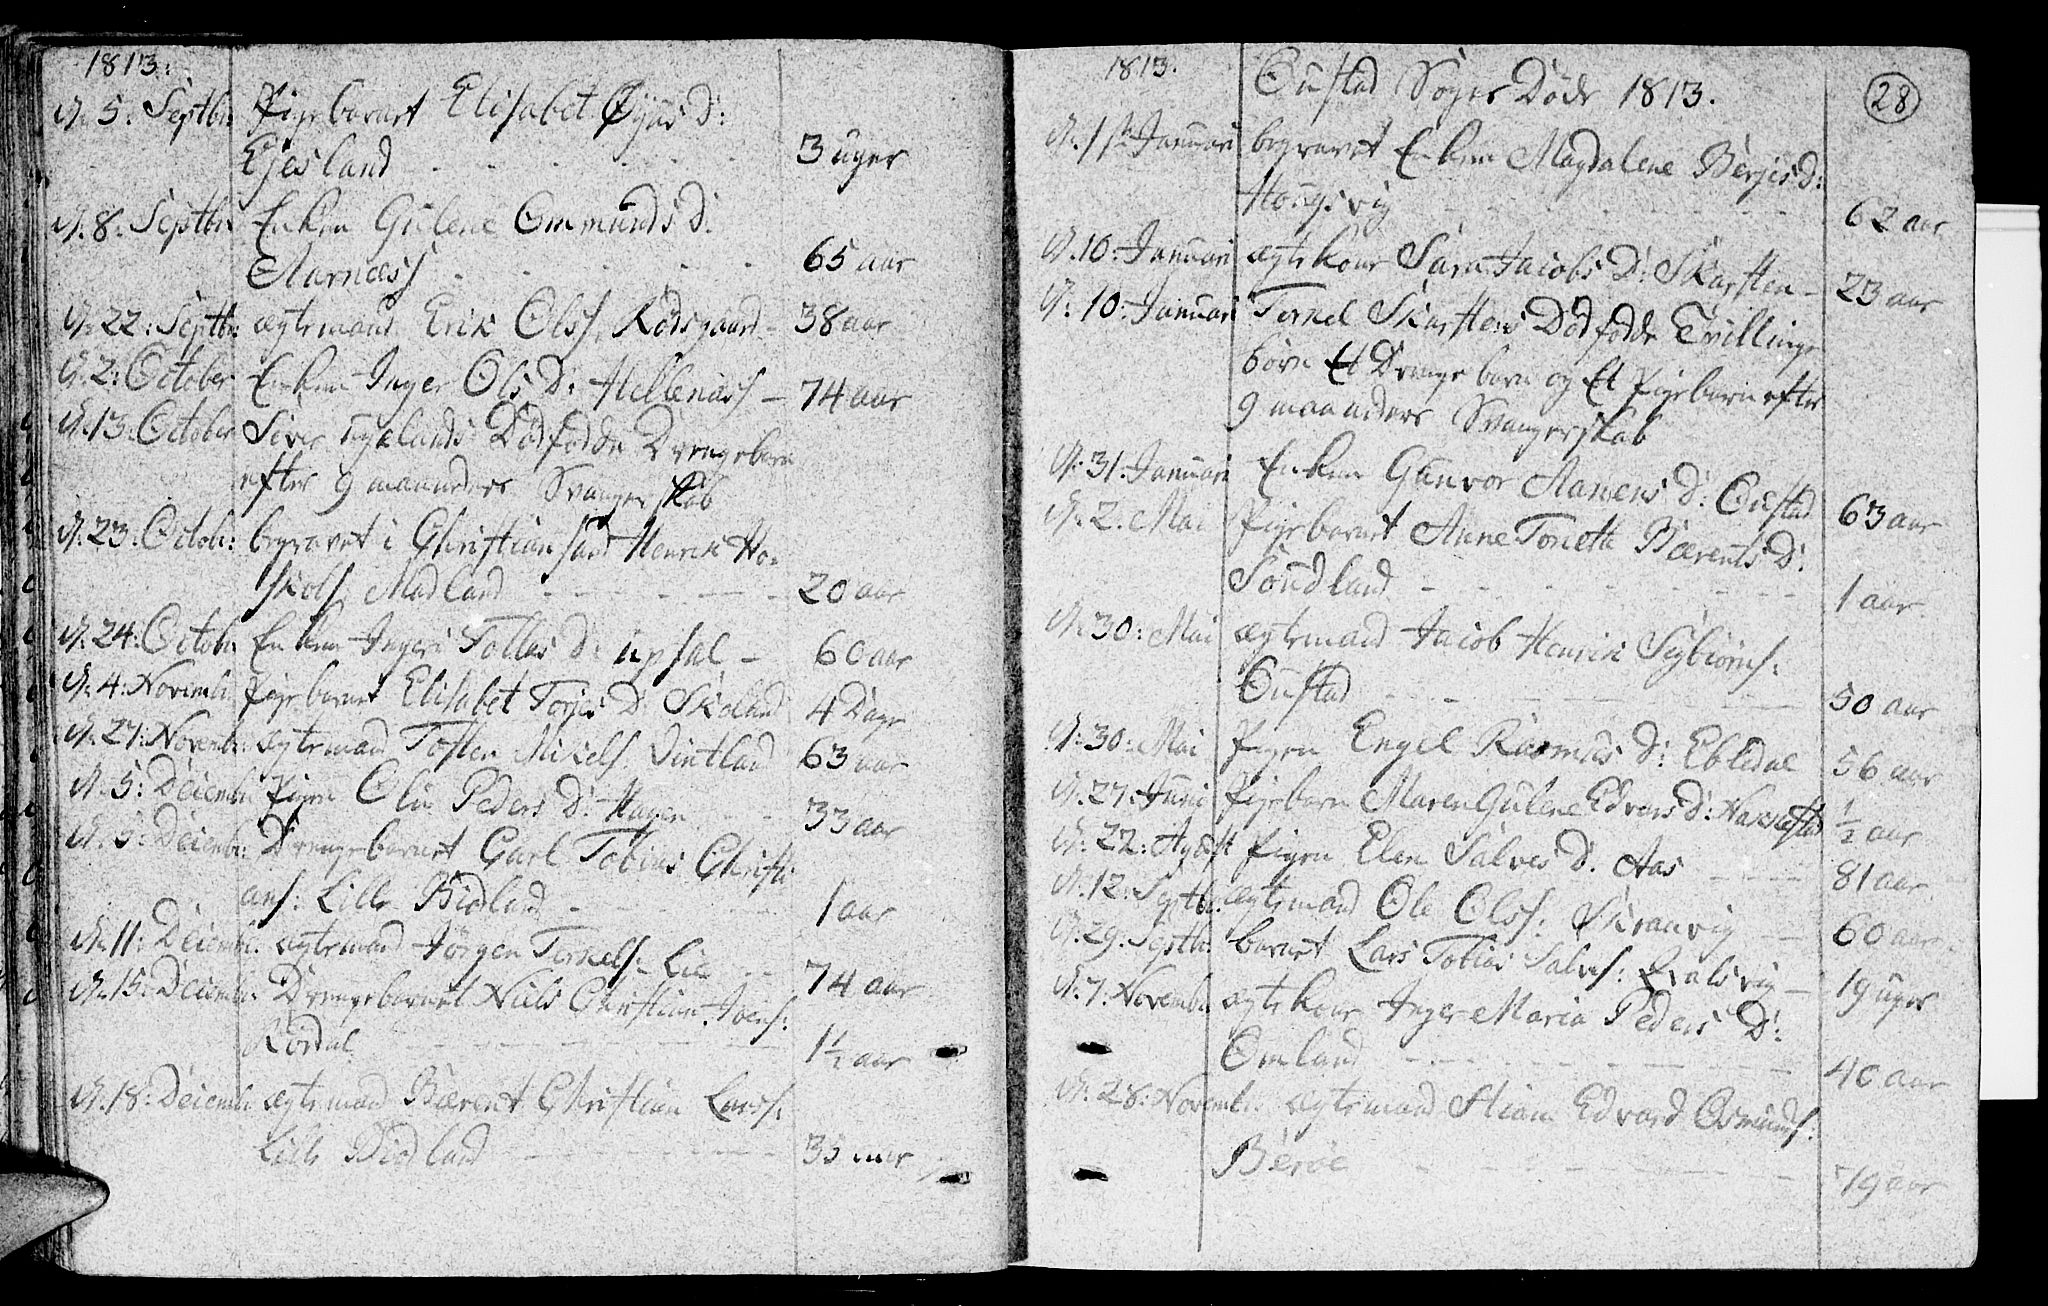 1813.
d. 5. Septbr: Pigebarnet Elisabet Øÿas D:
Ejesland 3 uger
d. 8. Septbr Enken Gulene Ommunds D:
Aarnæss 65 aar
d. 22: Septbr ægtemand Erik Ols. Rødsgaard 38 aar
d. 2: October Enken Inger Ols D: Hellenæs 74 aar
d. 13. October Siver Dødfødde Drengebarn
efter 9 maaneders Svangerskab
d. 23. Octobr: begravet i Christiansand Henrik Ho=
skols. Madland 20 aar
d. 24: Octobr Enken Inger Tolles D: upsal 60 aar
d. 4: Novembr Pigebarnet Elisabet Torjes D: Skoland 4 Dage
d. 27: Novembr: ægtemand Tosten Mikels. 63 aar
d. 5: Decembr Pigen Olu Peders D: Hagen 33 aar
d. 5: Decembr: Drengebarnet Carl Tobias Christi
ans: Lille Birkland 1 aar
d. 11: Decembr. ægtemand Jørgen Terkels. Lie 74 aar
d. 15: Decembr: Drengebarnet Niels Christian Joens:
Røisdal 1½ aar
d. 18: Decembr ægtemand Bærent Christian Lars:
Lille 33 aar
1813. Oustad Sogns Døde 1813. 28
d. 1ste Januari begravet Enken Magdalene Berjes D:
Hougsvig 62 aar
d. 10: Januari ægtekone Sara Jacobs D: Skarsten 23 aar
d. 10: Januari Terkel Skarstens Dødfødde Tvillinge
børn Et Drengebarn og Et Pigebarn efter
9 maaneders Svangerskab
d. 31. Januari Enken Gunvor Aanens D: Oustad 63 aar
d. 2. Mai Pigebarnet Anne Torieta Bærents D:
Soudland 1 aar
d. 30: Mai ægtemand Jacob Henrik Sybiørns:
Oustad 50 aar
d. 30: Mai Pigen Engel Rasmus D: Ebledal 56 aar
d. 27: Juni Pigebarn Maren Gulene Edvars D: ½ aar
d. 22: Agust Pigen Elen Salves D. Aas 81 aar
d. 12: Septbr. ægtemand Ole Ols: Skranvig 60 aar
d. 29: Septbr barnet Lars Tobias Salves: Qvalsvig 19 uger
d. 7: Novembr ægtekone Inger Maria Peders D:
Omland 40 aar
d. 28: Novembr. ægtemand Stian Edvard Osmunds:
Berøe 79 aar